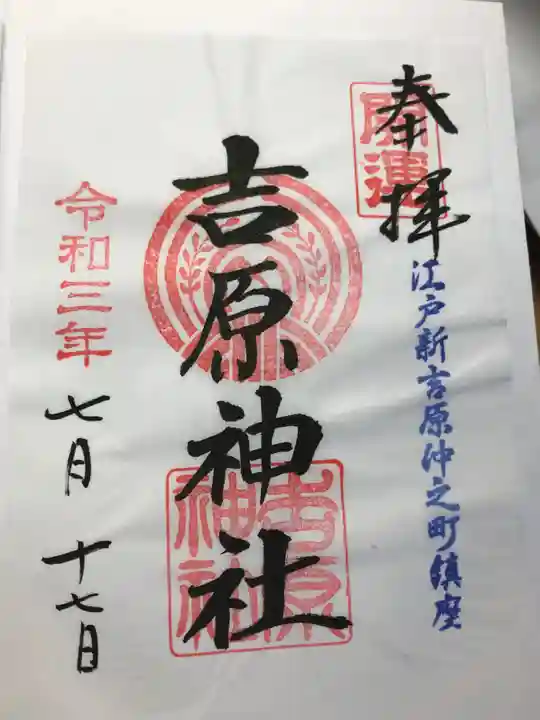 奉拝
開運
江戸新吉原仲之町鎮座
吉原神社
吉原
神社
令和三年
七月十七日